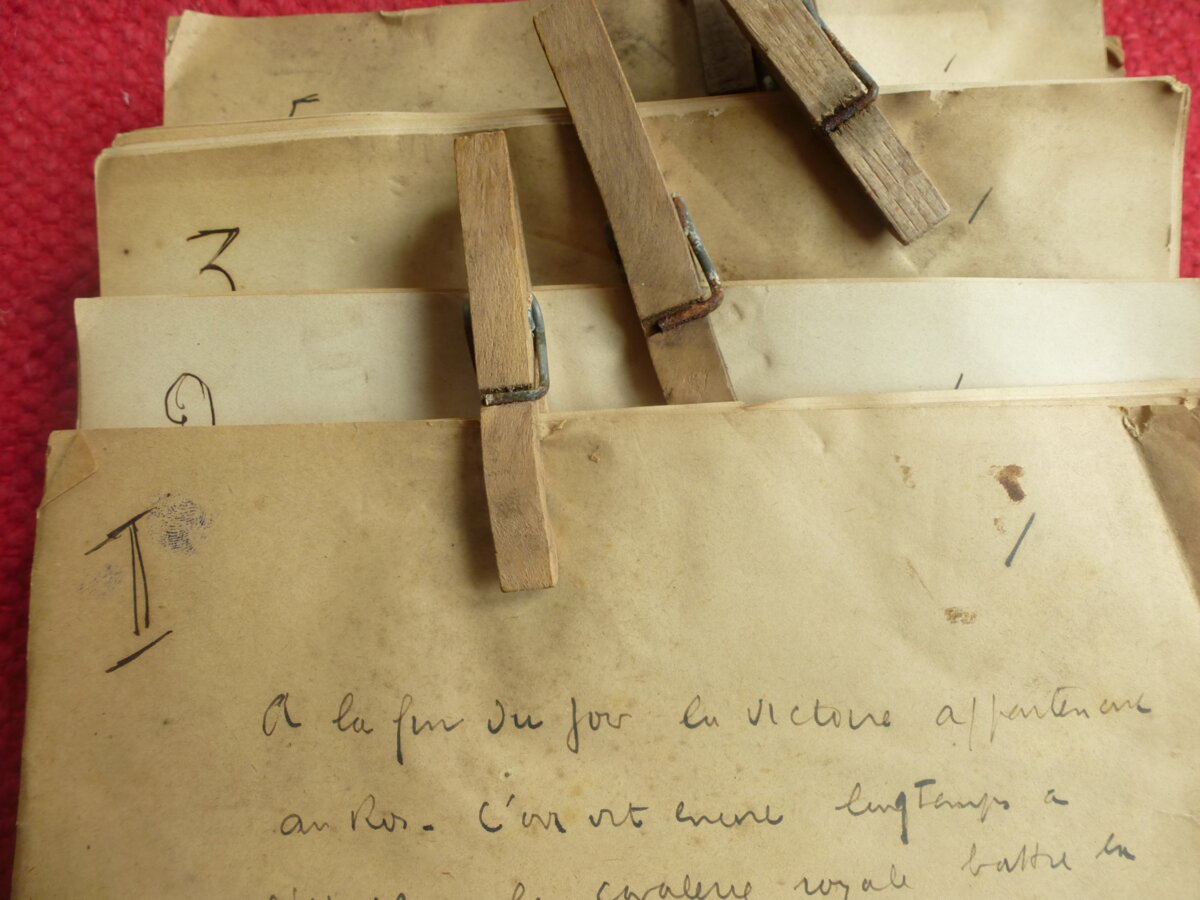 5
/
3
/
2
/
I
/
A la fin du jour la victoire appartenait
au Roi. L'on vit encore longtemps a
la cavalerie royale battre en